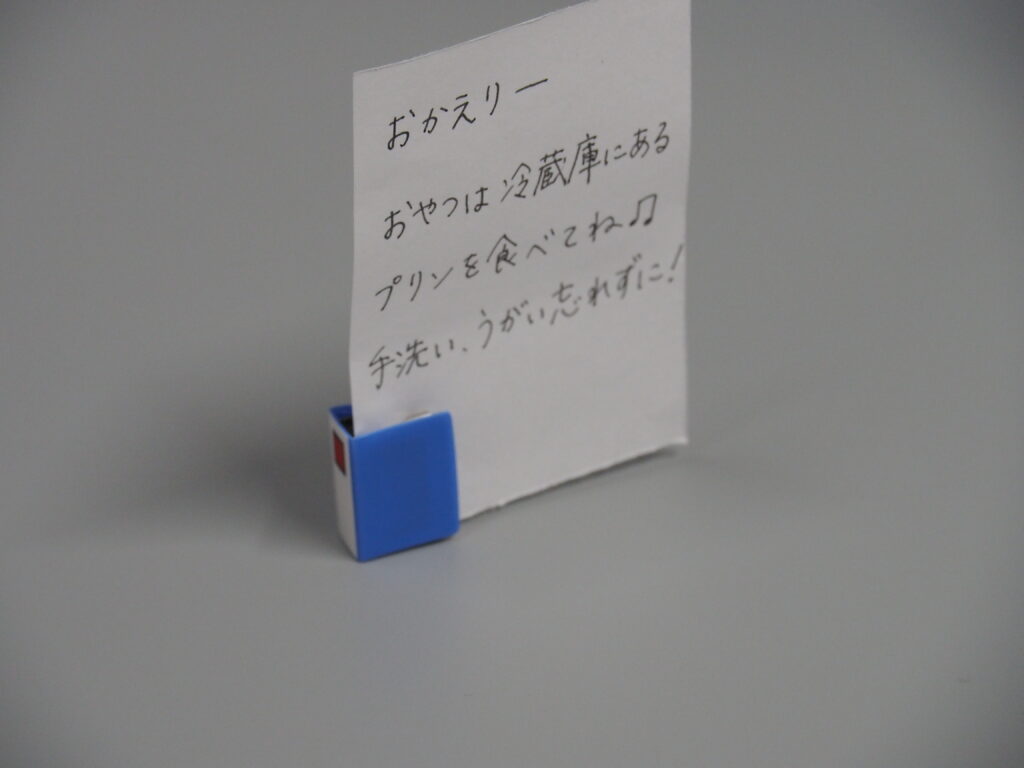 おかえりー
おやつは冷蔵庫にある
プリンを食べてね♫
手洗い、うがい忘れずに!